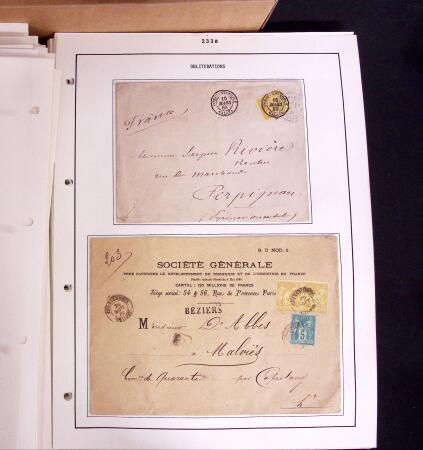 2338
OBLITERATIONS
France
Monsieur Jacques Rivière
Rentier
rue des marchands
Perpignan
203
B. D. MOD. 6
SOCIÉTÉ GÉNÉRALE
POUR FAVORISER LE DÉVELOPPEMENT DU COMMERCE ET DE L'INDUSTRIE EN FRANCE
CAPITAL : 120 MILLIONS DE FRANCS
Siège social : 54 & 56, Rue de Provence, Paris
BÉZIERS
5
Monsieur D'Abbes
à Malviés
Comne de Quarante par Capestang